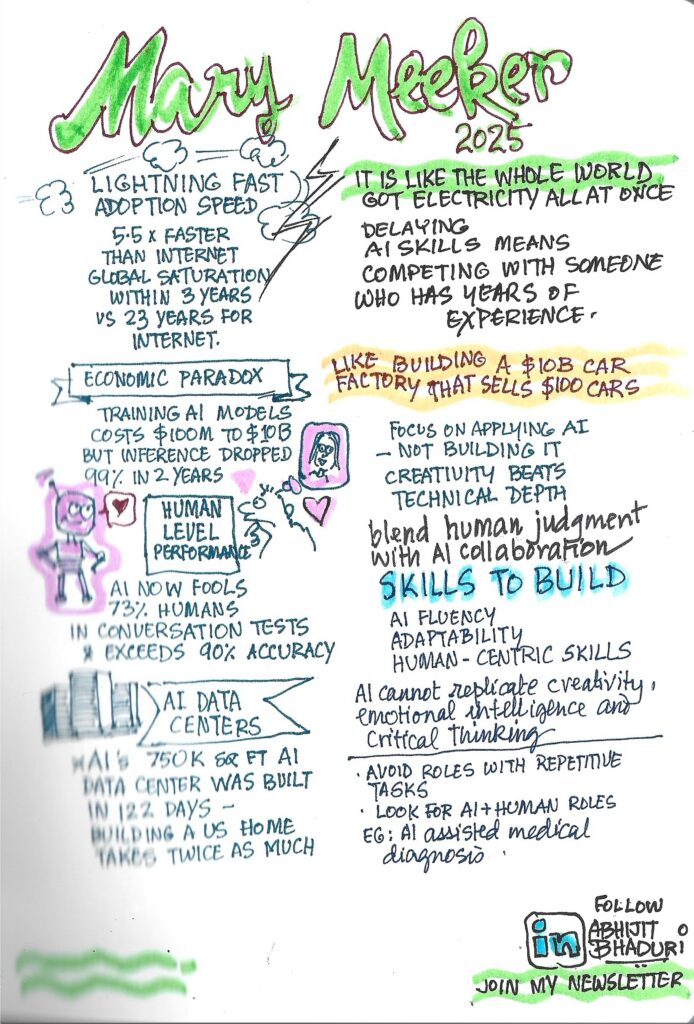 Mary Meeker
2025
LIGHTNING FAST
ADOPTION SPEED
5.5 x FASTER
THAN INTERNET
GLOBAL SATURATION
WITHIN 3 YEARS
VS 23 YEARS FOR
INTERNET.
ECONOMIC PARADOX
TRAINING AI MODELS
COSTS $100M TO $10B
BUT INFERENCE DROPPED
99% IN 2 YEARS
HUMAN
LEVEL
PERFORMANCE
AI NOW FOOLS
73% HUMANS
IN CONVERSATION TESTS
& EXCEEDS 90% ACCURACY
AI DATA
CENTERS
xAI's 750K SQ FT AI
DATA CENTER WAS BUILT
IN 122 DAYS –
BUILDING A US HOME
TAKES TWICE AS MUCH
IT IS LIKE THE WHOLE WORLD
GOT ELECTRICITY ALL AT ONCE
DELAYING
AI SKILLS MEANS
COMPETING WITH SOMEONE
WHO HAS YEARS OF
EXPERIENCE.
LIKE BUILDING A $10B CAR
FACTORY THAT SELLS $100 CARS
FOCUS ON APPLYING AI
– NOT BUILDING IT
CREATIVITY BEATS
TECHNICAL DEPTH
blend human judgment
with AI collaboration
SKILLS TO BUILD
AI FLUENCY
ADAPTABILITY
HUMAN-CENTRIC SKILLS
AI cannot replicate creativity,
emotional intelligence and
critical thinking
· AVOID ROLES WITH REPETITIVE
TASKS
· LOOK FOR AI + HUMAN ROLES
EG: AI assisted medical
diagnosis.
in
FOLLOW
ABHIJIT
BHADURI
JOIN MY NEWSLETTER